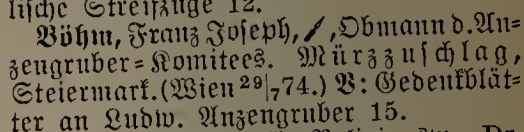 lische Streifzüge 12.
Böhm, Franz Joseph, Obmann d. An=
zengruber=Komitees. Mürzzuschlag,
Steiermark. (Wien 29/7 74.) V: Gedenkblät=
ter an Ludw. Anzengruber 15.